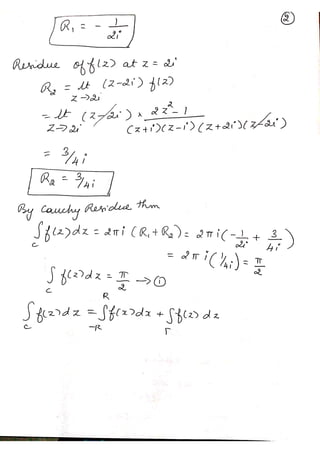 ②
R₁ = - 1/2i
Residue of f(z) at z = 2i
R₂ = lt z→2i (z-2i) f(z)
= lt z→2i (z-2i) × 2z²-1 / (z+i)(z-i)(z+2i)(z-2i)
= 3/4i
R₂ = 3/4i
By Cauchy Residue thm
∫c f(z)dz = 2πi (R₁+R₂) = 2πi (-1/2i + 3/4i)
= 2πi (1/4i) = π/2
∫c f(z)dz = π/2 → ①
∫c f(z)dz = ∫-R^R f(x)dx + ∫Γ f(z) dz